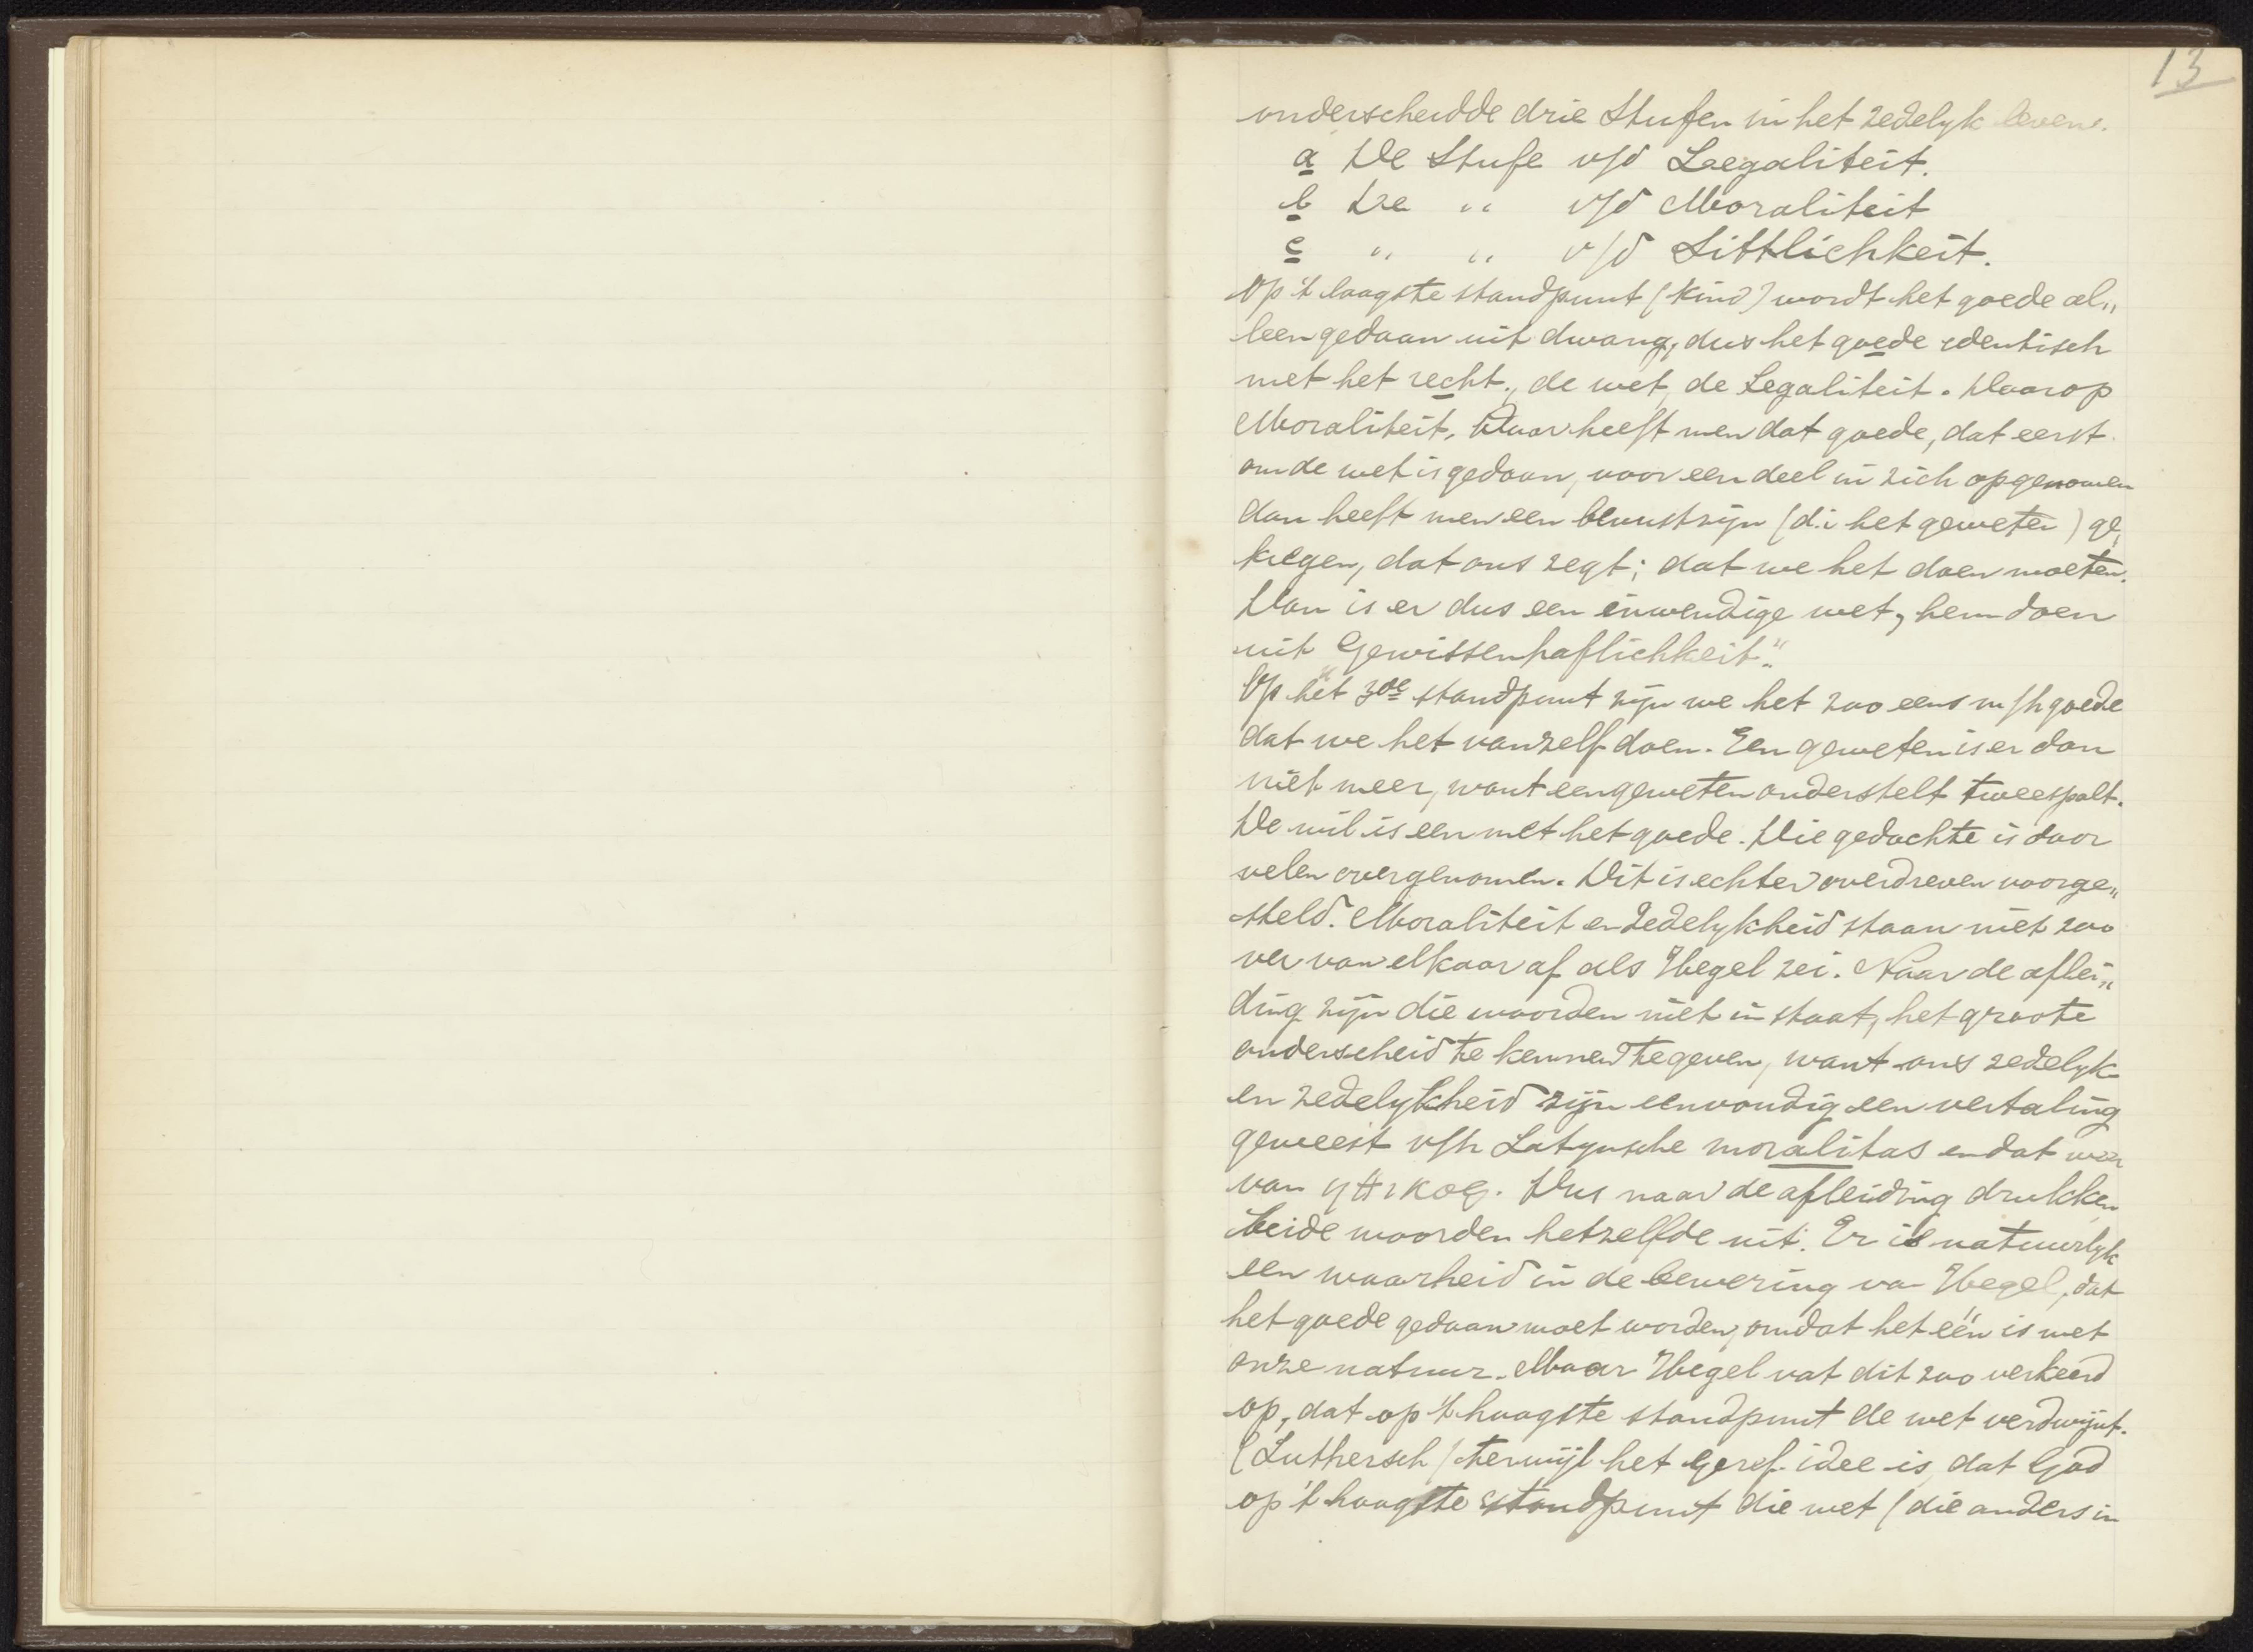 13
onderscheidde drie Stufen in het zedelyk leven.
a De Stufe v/d Legaliteit.
b De " v/d Moraliteit
c " " v/d Sittlichkeit.
Op 't laagste standpunt (kind) wordt het goede al„
leen gedaan uit dwang, dus het goede identisch
met het recht, de wet, de Legaliteit. Daarop
Moraliteit. Daar heeft men dat goede, dat eerst
om de wet is gedaan, voor een deel in zich opgenomen
dan heeft men een bewustzijn (d.i het geweten) ge„
kregen, dat ons zegt; dat we het doen moeten.
Dan is er dus een inwendige wet, hem doen
uit "Gewissenhaftlichkeit".
Op het 3de standpunt zijn we het zoo eens m/h goede
dat we het vanzelf doen. Een geweten is er dan
niet meer, want een geweten onderstelt tweespalt.
De wil is een met het goede. Die gedachte is door
velen overgenomen. Dit is echter overdreven voorge„
steld. Moraliteit en Zedelykheid staan niet zoo
ver van elkaar af als Hegel zei. Naar de aflei„
ding zijn die woorden niet in staat, het groote
onderscheid te kennen te geven, want ons zedelyk
en zedelykheid zijn eenvoudig een vertaling
geweest v/h Latynsche moralitas en dat weer
van ηθικος. Dus naar de afleiding drukken
beide woorden hetzelfde uit. Er is natuurlyk
een waarheid in de bewering va Hegel, dat
het goede gedaan moet worden, omdat het één is met
onze natuur. Maar Hegel vat dit zoo verkeerd
op, dat op 't hoogste standpunt de wet verdwijnt.
(Luthersch) terwijl het Geref. idee is dat God
op 't hoogste standpunt die wet (die anders in